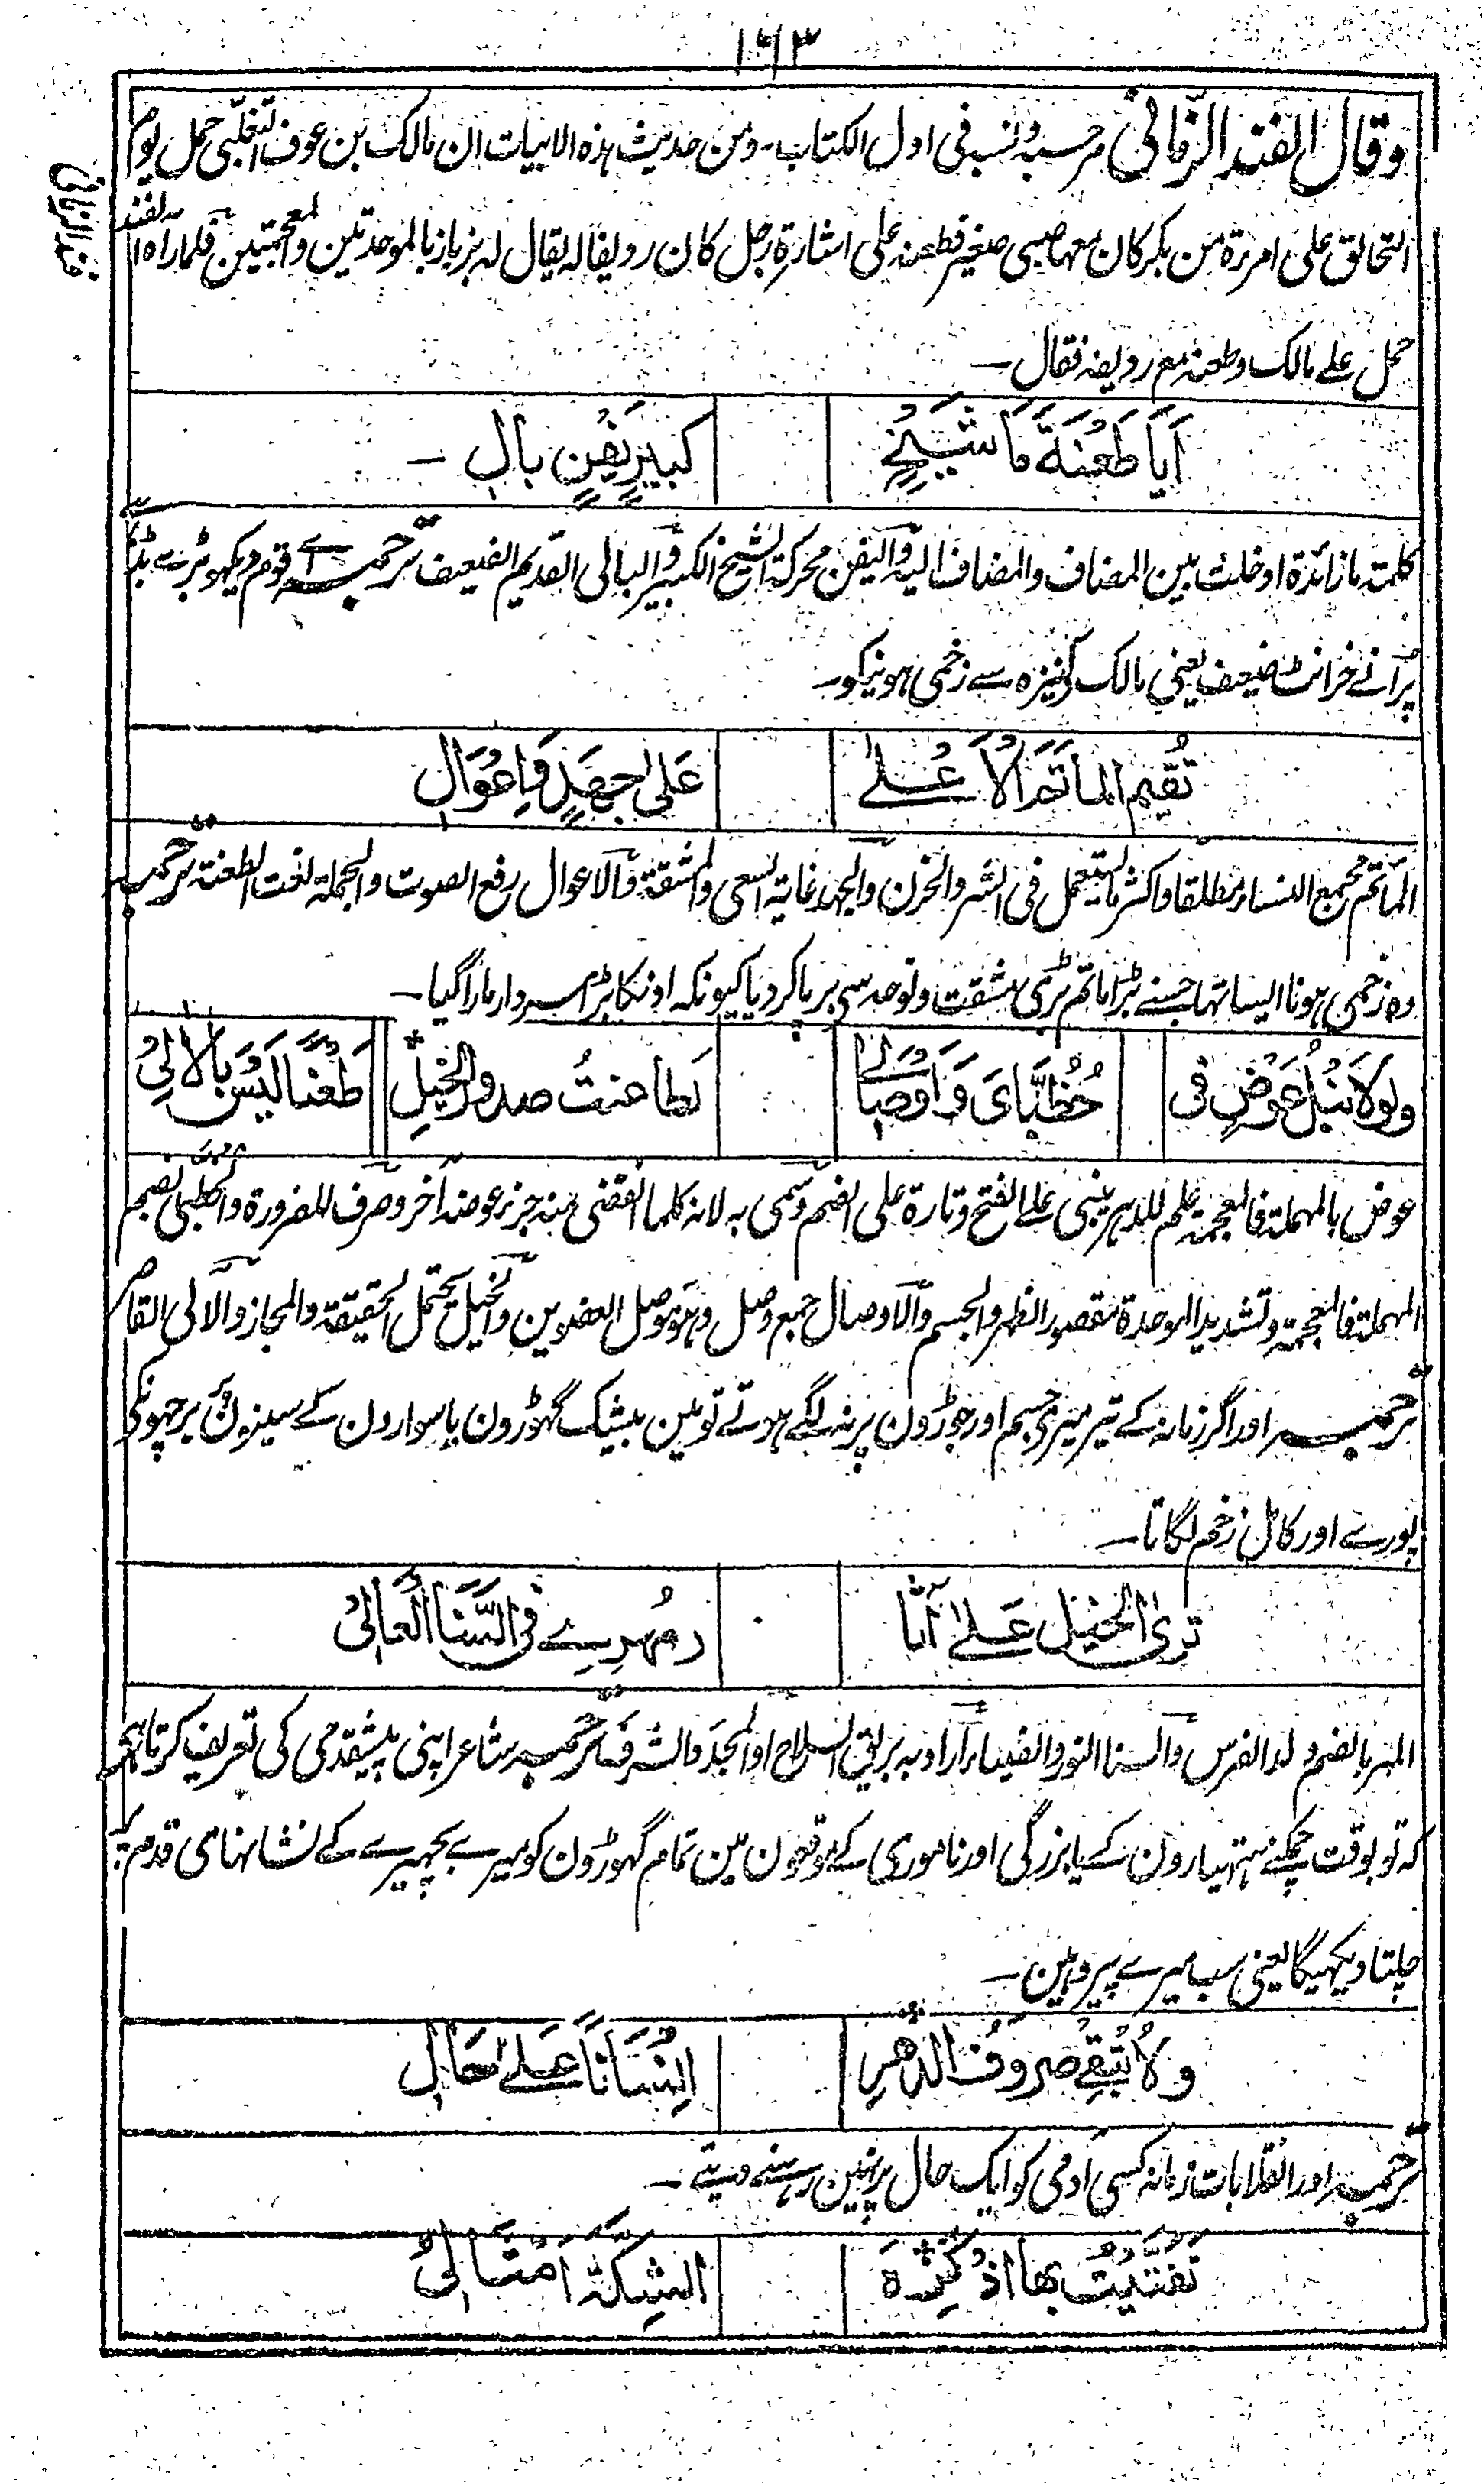 ١٦٣
وقال الفند الزّمانیُّ مر حسبه ونسبه فی اول الکتاب۔ ومن حدیث هذه الابیات ان مالک بن عوف التغلبی حمل یوم
التحالق علی امرءة من بکر کان معها صبی صغیر فطعنه علی اشارة رجل کان ردیفا له یقال له بزباز بالموحدتین والمعجمتین فلما راه الفند
فند الزمانی
حمل علے مالک وطعنه مع ردیفه فقال ۔
اَیَا طَعْنَةَ مَا شَیْخٍ کَبِیْرٍ یَفَنٍ بالِ ۔
کلمة ما زائدة ادخلت بین المضاف والمضاف الیه والیفن محرکة الشیخ الکبیر والبالی القدیم الضعیف ترجمہ اے قوم دیکھو بڑے بڈھے
پرانے خرانٹ ضعیف یعنی مالک کو نیزہ سے زخمی ہونیکو۔
تُقیم الماتَمَ الاَعْلےٰ عَلیٰ جهدٍ وَاِعْوَالِ
الماتم مجمع النساء مطلقا واکثر ما یستعمل فی الشر والحزن والجهد غایة السعی والمشقة والاعوال رفع الصوت والجملة نعت الطعنة ترجمہ
وہ زخمی ہونا ایسا تہا جسنے بڑا ماتم بڑی مشقت و نوحہ سی برپا کر دیا کیونکہ اونکا بڑا سردار مارا گیا ۔
ولولا نَبْلُ عَوْضٍ فی حُظُبَّایَ وَاَوْصَالیْ لطاعنتُ صدورَ الخیلِ طَعْنًا لَیْسَ بالاٰلیْ
عوض بالمهملة فالمعجمة علم للدهر یبنی علے الفتح وتارة علی الضم وسمی به لانه کلما انقضی منه جزء عوضه آخر وصرف للضرورة والحظبی بضم
المهملة فالمعجمة وتشدید الموحدة مقصورا الظهر والجسم والاوصال جمع وصل وهو موصل العضوین والخیل یحتمل الحقیقة والمجاز والآلی القاصر
ترجمہ اور اگر زمانہ کے تیر میری جسم اور جوڑون پر نہ لگے ہوتے تو مین بیشک گھوڑون یا سوارون کے سینون پر برچھونکی
پورے اور کامل زخم لگاتا ۔
تری الخیل عَلےٰ آثا رِ مُهرِے فی السَّنَا العَالیْ
المهر بالضم ولد الفرس والسنا النور والضیاء اراد به بریق السلاح او المجد والشرف ترجمہ شاعر اپنی پیشقدمی کی تعریف کرتا ہے
کہ تو بوقت چمکنے ہتہیارون کے یا بزرگی اور ناموری کے موقعون مین تمام گھوڑون کو میرے بچھیرے کے نشانہای قدم پر
چلتا دیکھیگا یعنی سب میرے پیرو ہین ۔
ولا تُبْقِے صروفُ الدَّهرِ اِنْسَانًا عَلےٰ حَالِ
ترجمہ اور انقلابات زمانہ کسی آدمی کو ایک حال پر نہین رہنے دیتے ۔
تَفَتَّیْتُ بها اذ کَرِهَ الشِکَّةَ اَمْثَالیْ